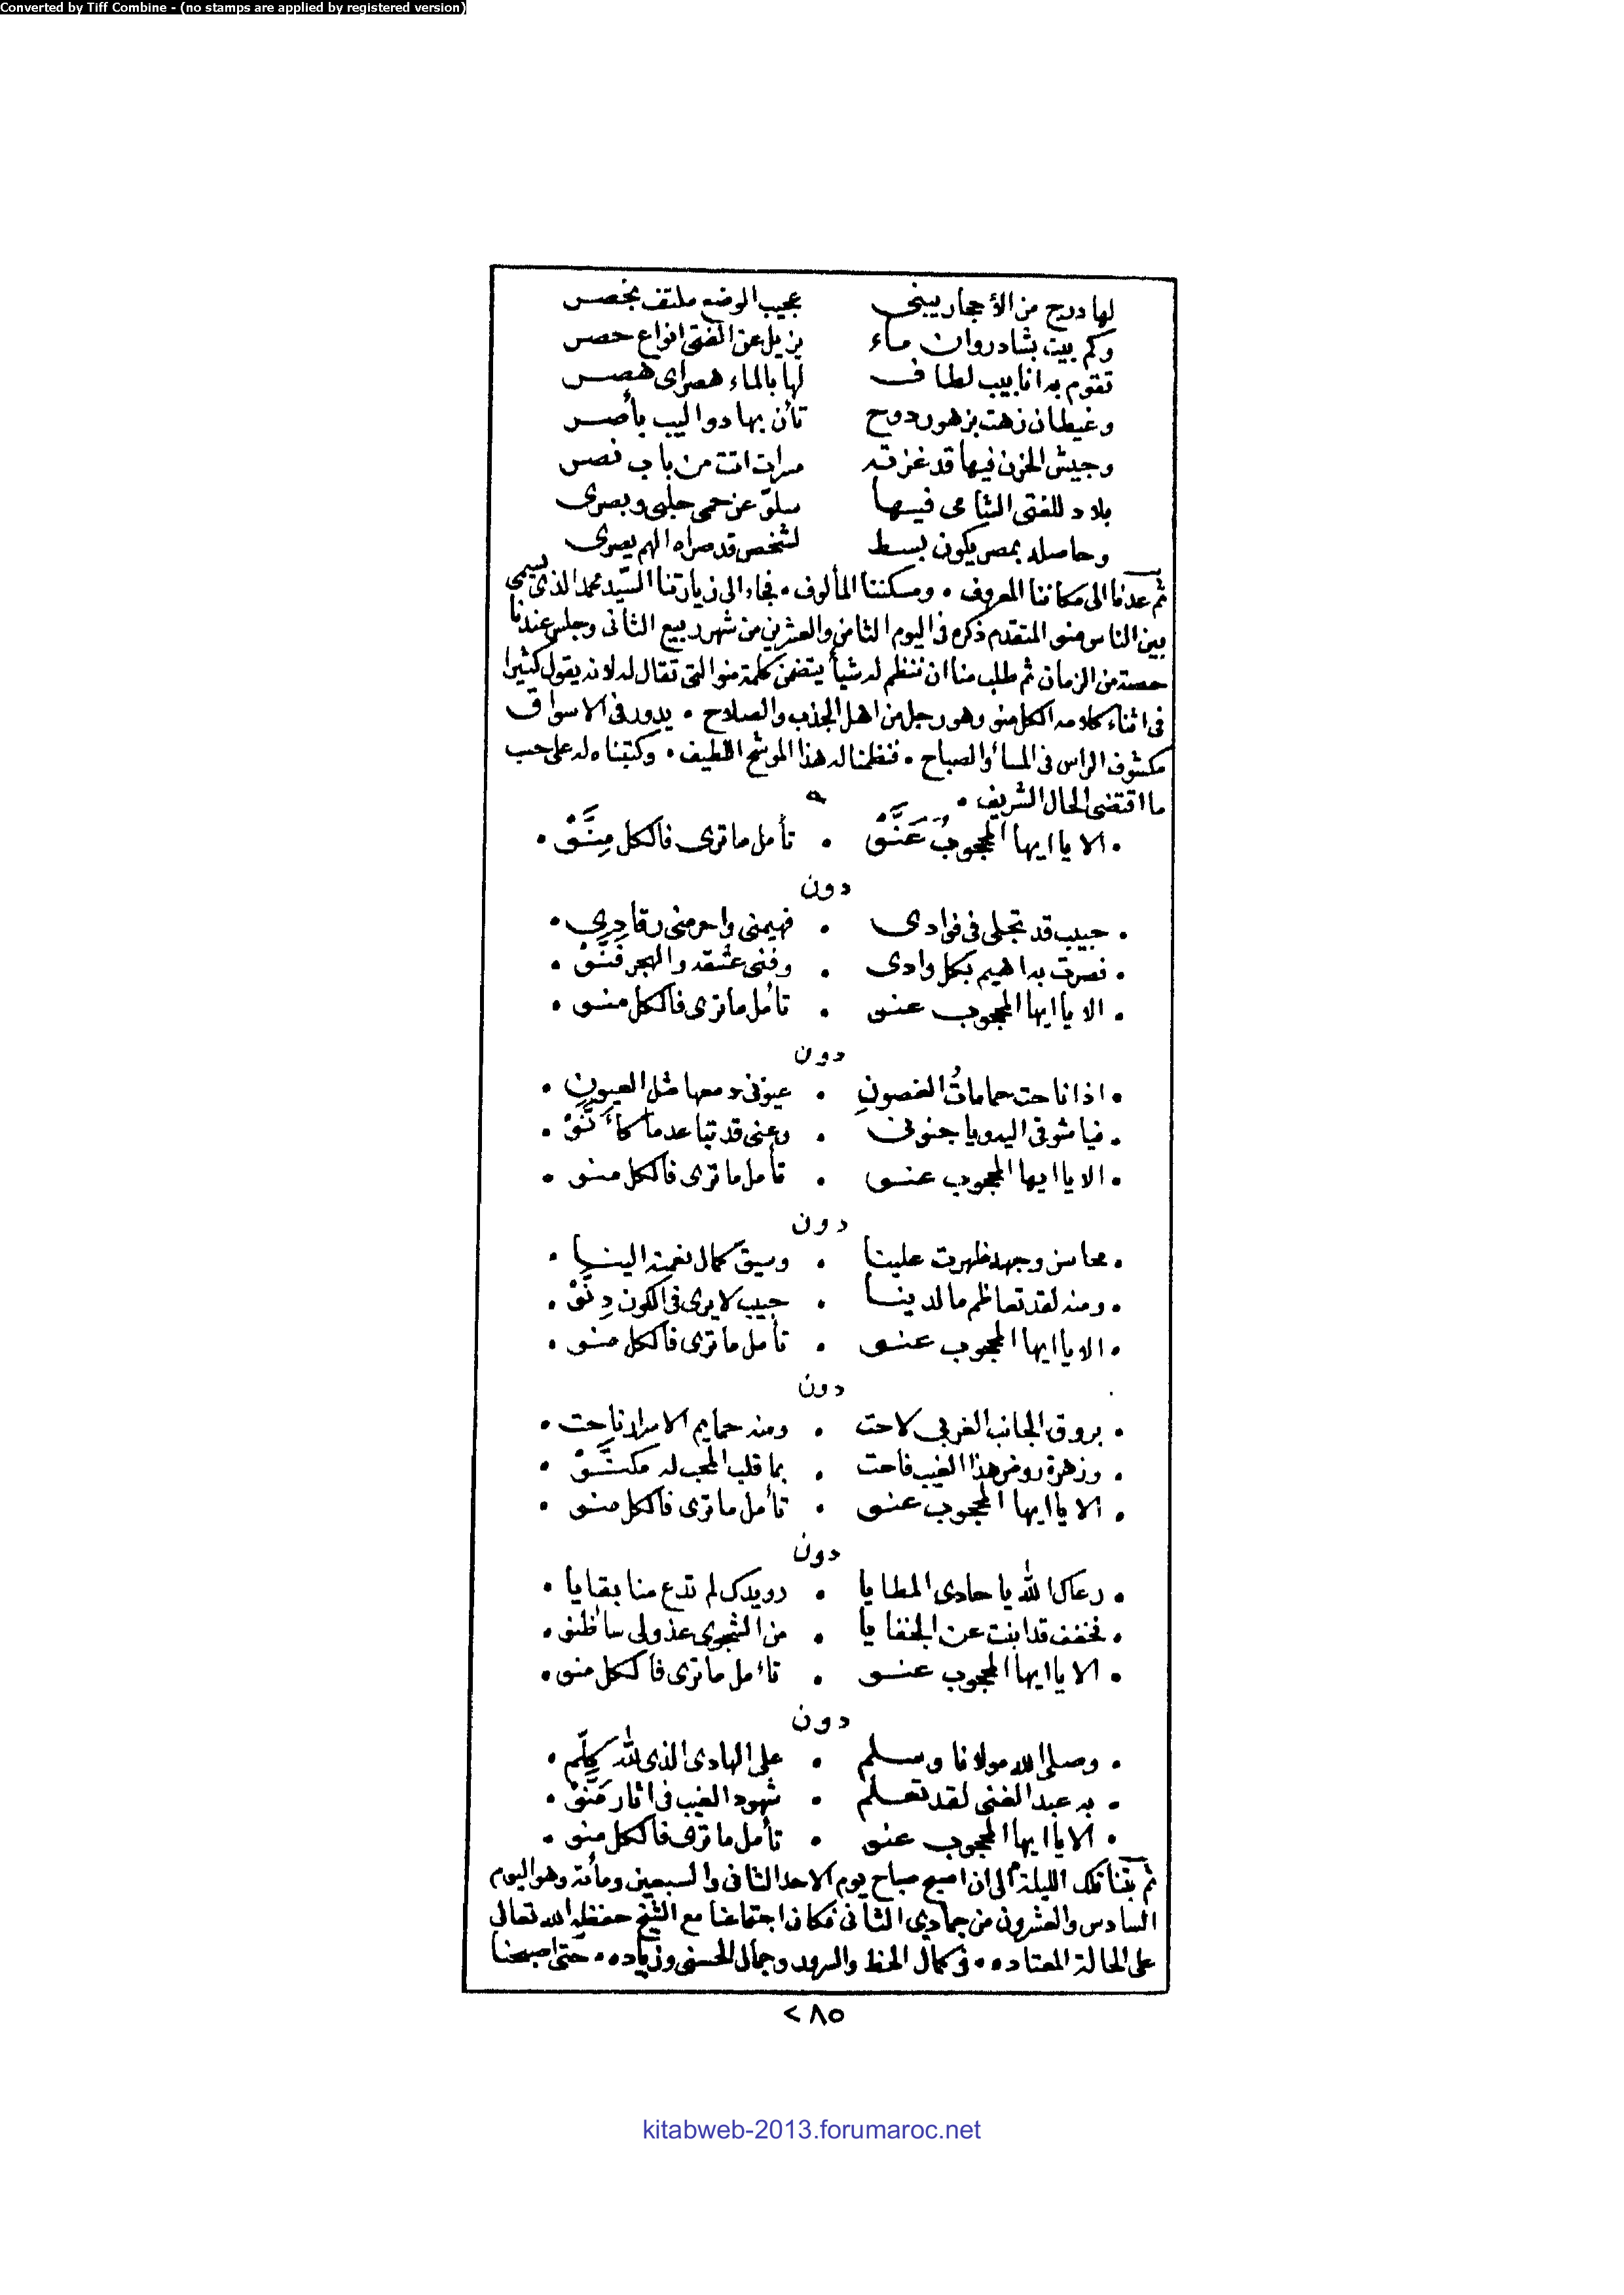 Converted by Tiff Combine - (no stamps are applied by registered version)
لها درج من الأحجار يبنى عجيب الوضع ملتف بخصر
وكم بيت بشادروان ماء يزيل عن الفتى انواع حصر
تقوم به انابيب لطاف لها بالماء هصر اى هصر
وغيطان زهت بزهور دوح تأن بها دواليب بأصر
وجيش الحزن فيها قد غزته مسرات اتت من باب نصر
بلاد للفتى الشامى فيها سلوّ عن حمى حلب وبصرى
وحاصله بمصر يكون بسط لشخص قد صراه الهم يصرى
ثم عدنا الى مكاننا المعروف • ومسكننا المألوف • فجاء الى زيارتنا السيّد محمد الذى يسمى
بين الناس منو المتقدم ذكره فى اليوم الثامن والعشرين من شهر ربيع الثانى وجلس عندنا
حصة من الزمان ثم طلب منا ان ننظم له شيأ يتضمن كلمة منو التى تقال له لانه يقول كثيرا
فى اثناء كلامه الكل منو وهو رجل من اهل الجذب والصلاح • يدور فى الاسواق
مكشوف الراس فى المسا والصباح • فنظمنا له هذا الموشح اللطيف • وكتبناه له على حسب
ما اقتضى الحال الشريف •
• الا يا ايها المحجوبُ عَنَّوْ • تأمل ما ترى فالكل مِنَّوْ •
دون
• حبيب قد تجلى فى فؤادى • فهيمنى واحرمنى رقادِى •
• فصرت به اهيم بكل وادى • وفنى عشقه والهجر فَنَّوْ •
• الا يا ايها المحجوب عنو • تأمل ما ترى فالكل منو •
دون
• اذا ناحت حماماتُ الغصونِ • عيونى دمعها مثل العيونِ •
• فيا شوقى اليه ويا جنونى • وعنى قد تباعد ما كأَنَّوْ •
• الا يا ايها المحجوب عنو • تأمل ما ترى فالكل منو •
دون
• محاسن وجهه ظهرت علينا • وسيق كمال نعمته الينا •
• ومنه لقد تعاظم ما لدينا • حبيب لا يرى فى الكون دِنَّوْ •
• الا يا ايها المحجوب عنو • تأمل ما ترى فالكل منو •
دون
• بروق الجانب الغربى لاحت • ومنه حمايم الاسرار ناحت •
• وزهرة روض هذا الغيب فاحت • بما قلب المحب له مكنَّوْ •
• الا يا ايها المحجوب عنو • تأمل ما ترى فالكل منو •
دون
• رعاك الله يا حادى المطايا • رويدك لم تدع منا بقايا •
• فخفف قد ابنت عن الخفايا • من الشجوى عذولى ساظنو •
• الا يا ايها المحجوب عنو • تأمل ما ترى فالكل منو •
دون
• وصلى الله مولانا وسلم • على الهادى الذى لله كلّم •
• به عبد الغنى لقد تعلم • شهود الغيب فى اثار مَنَّوْ •
• الا يا ايها المحجوب عنو • تأمل ما ترى فالكل منو •
ثم بتنا تلك الليلة الى ان اصبح صباح يوم الاحد الثانى والسبعين ومأتة وهو اليوم
السادس والعشرون من جمادى الثانى فكان اجتماعنا مع الشيخ حفظه الله تعالى
على الحالة المعتاده • • فى كمال الحظ والسرور وجمال الحسنى وزياده • حتى اصبحنا
٢٨٥
kitabweb-2013.forumaroc.net